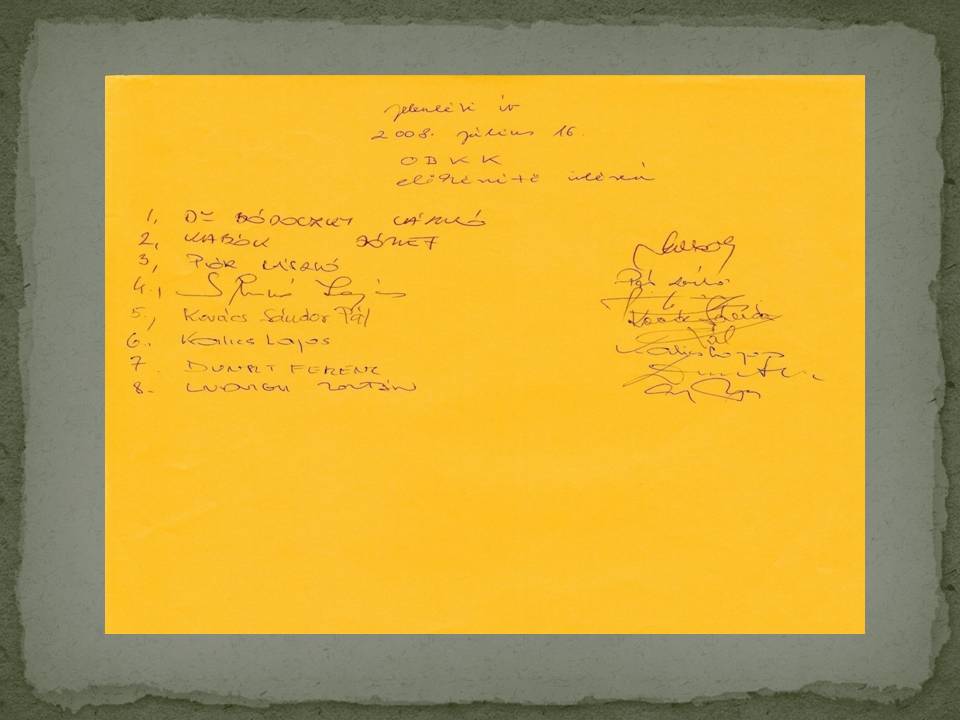 jelenléti ív
2008. július 16.
OBKK
előkészítő ülésén
1, Dr BÓDOCZKY LÁSZLÓ
2, KABÓK JÓZSEF
3, PÓR LÁSZLÓ
4., Lajos
5., Kovács Sándor Pál
6. Kalics Lajos
7. DUNAI FERENC
8. LUDVIGH ZOLTÁN
Pór László
Kovács Sándor
Pál
Kalics Lajos